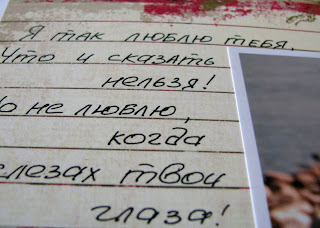 Я так люблю тебя,
Что и сказать
нельзя!
Но не люблю,
когда
слезах твои
глаза!